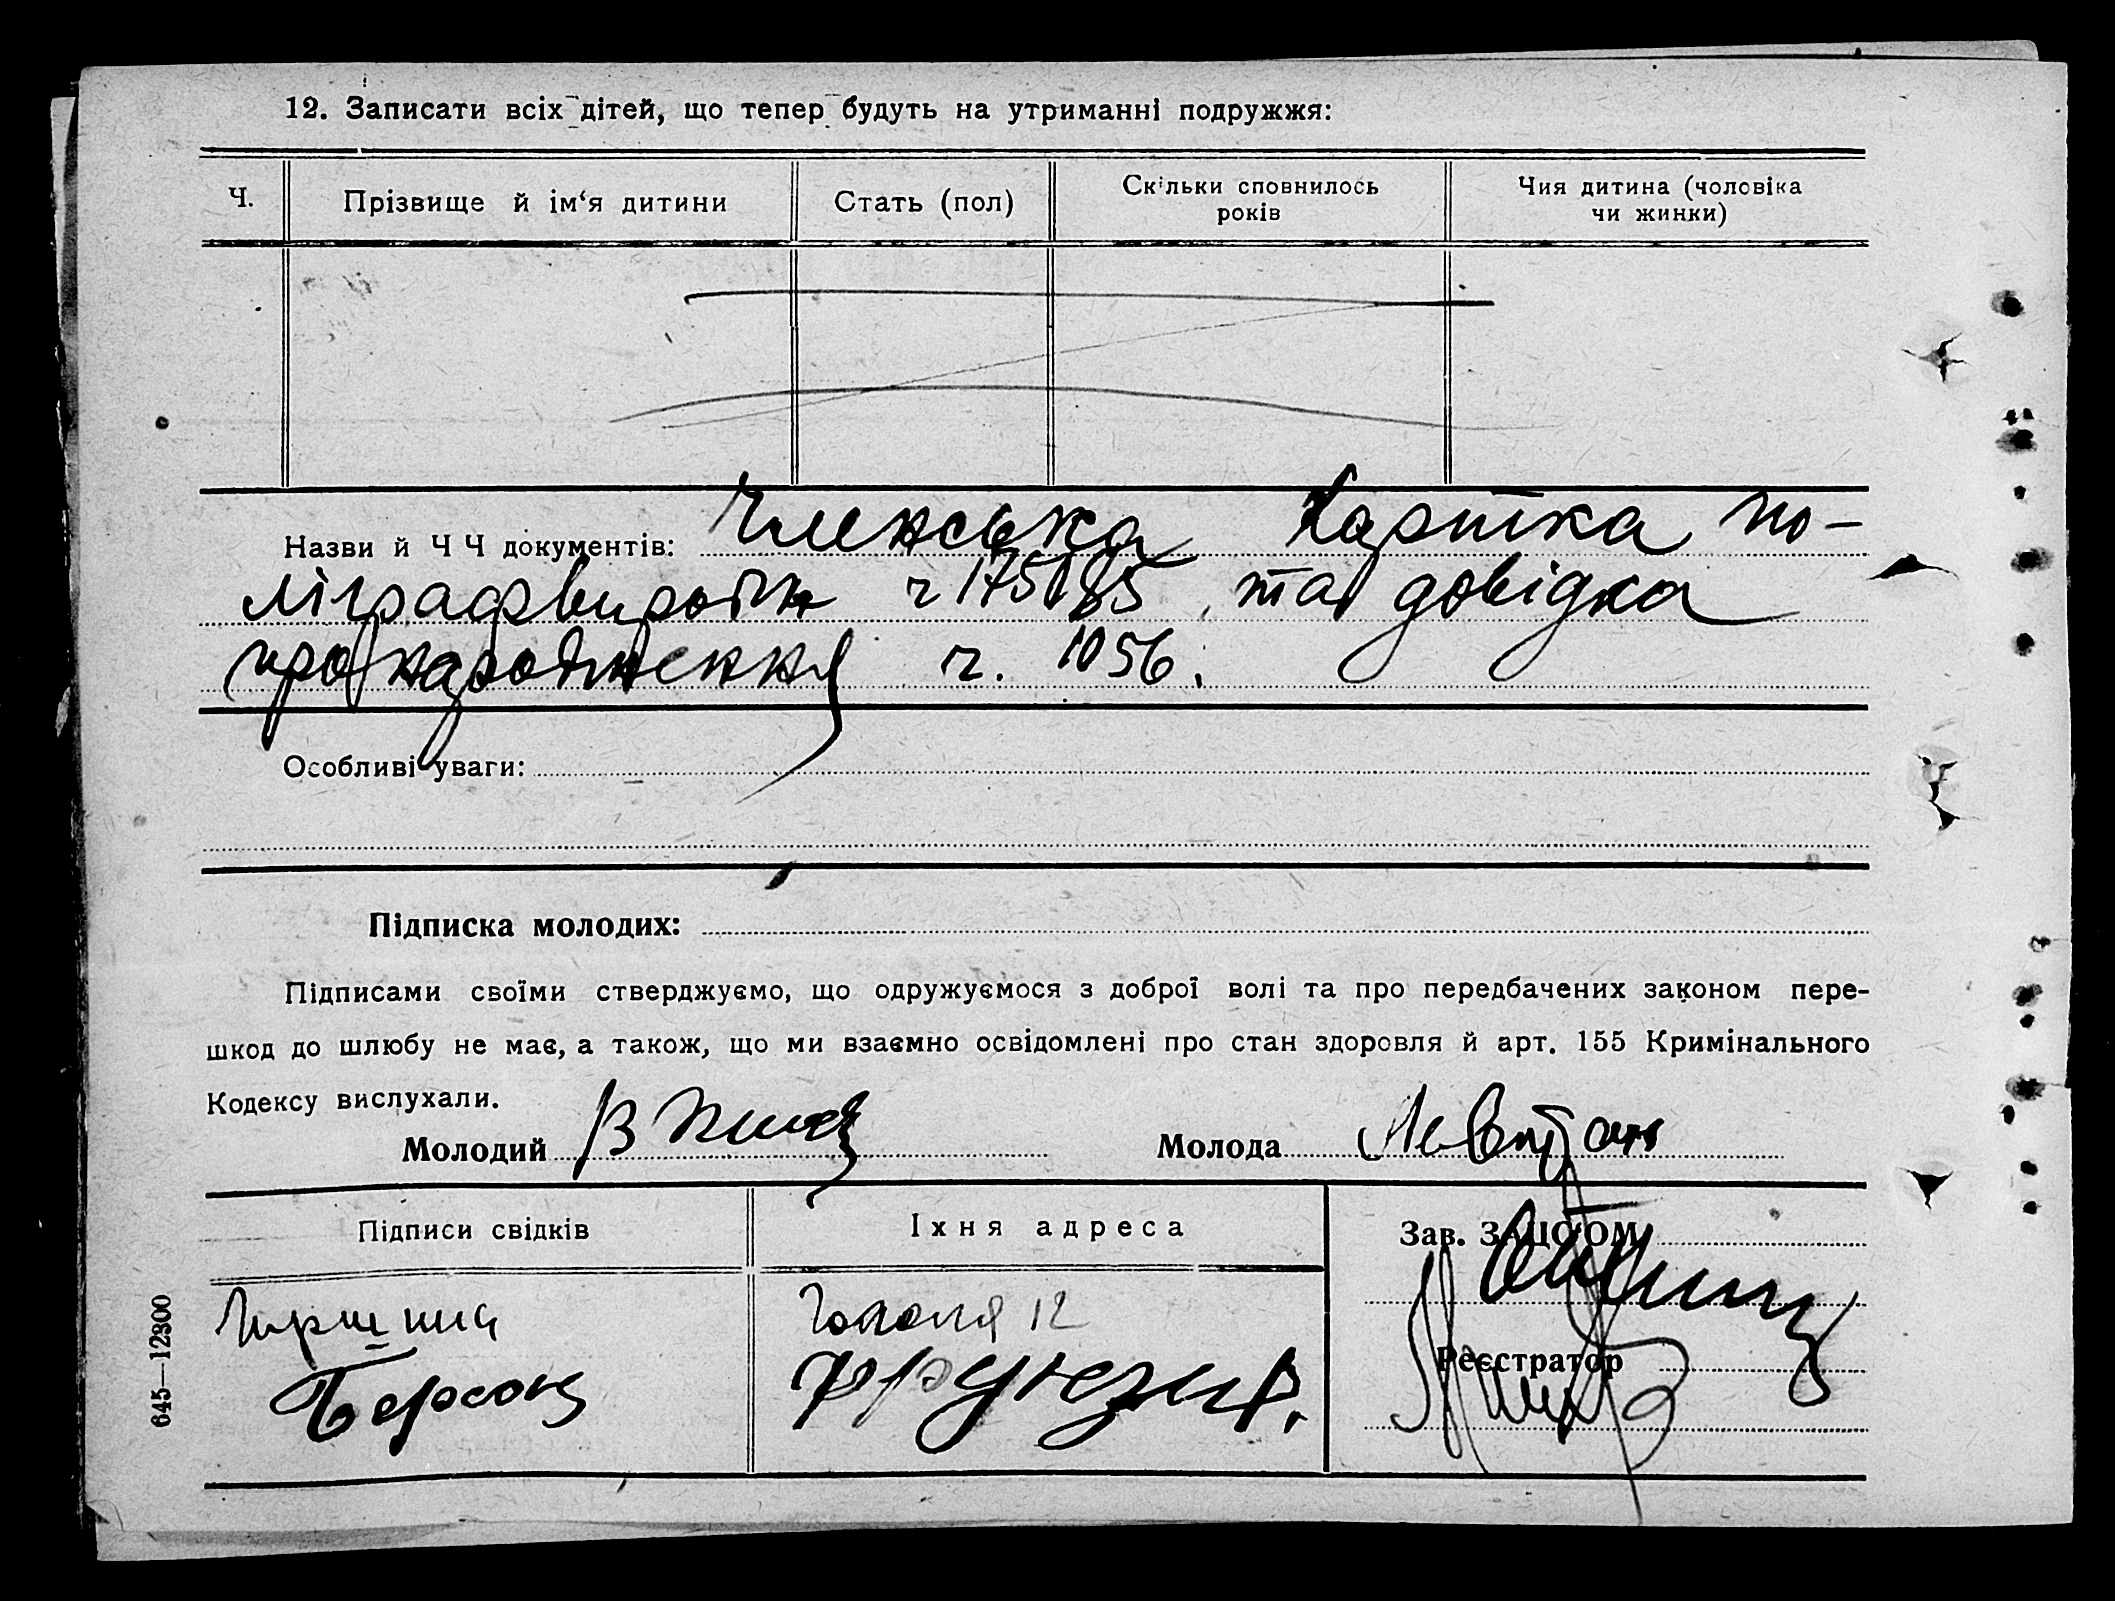 12. Записати всіх дітей, що тепер будуть на утриманні подружжя:
Ч.
Прізвище й ім‘я дитини
Стать (пол)
Скільки сповнилось
років
Чия дитина (чоловіка
чи жинки)
Назви й Ч Ч документів: Членська картка по-
ліграфвиробн ч 175185 та довідка
про народження ч. 1056.
Особливі уваги:
Підписка молодих:
Підписами своїми стверджуємо, що одружуємося з доброї волі та про передбачених законом пере-
шкод до шлюбу не має, а також, що ми взаємно освідомлені про стан здоровля й арт. 155 Кримінального
Кодексу вислухали.
Молодий В
Молода Левитан
Підписи свідків
Їхня адреса
Зав. ЗАЦС‘ОМ
Гоголя 12
Берсон
Фрунзе
Реєстратор
645—12300